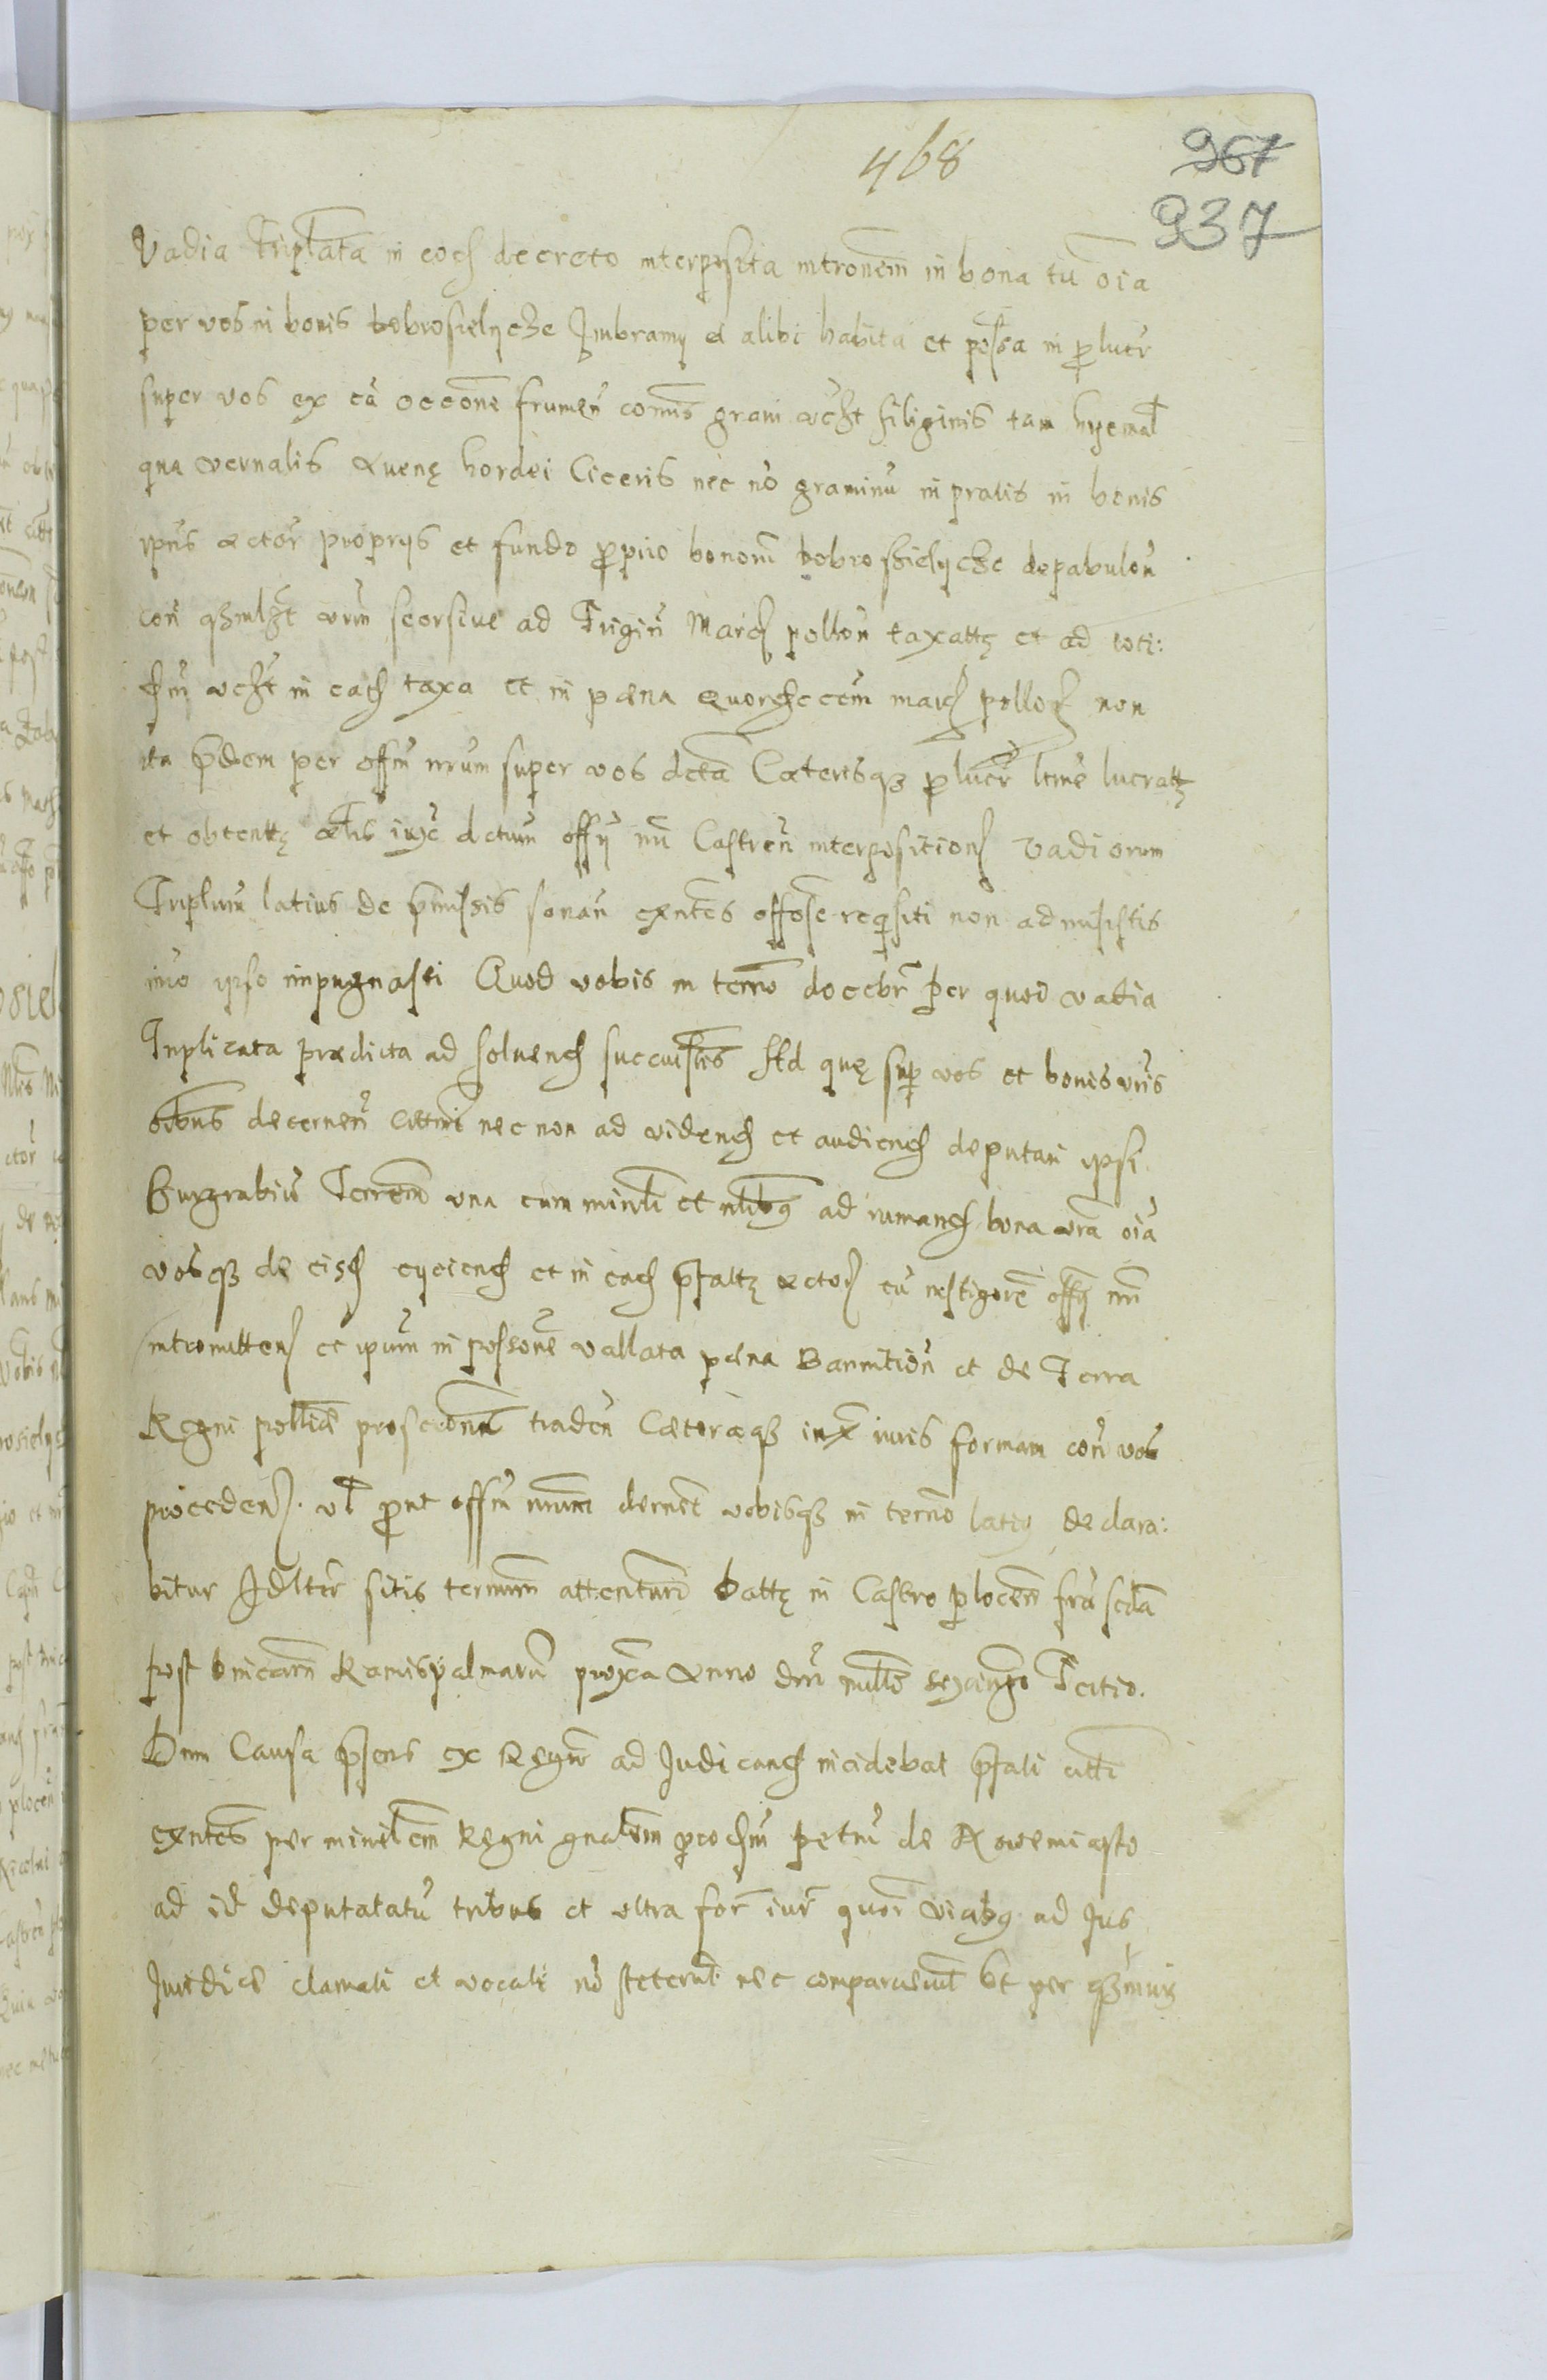 468
967
937
Vadia Triplata in eod decreto interposita intronem in bona tu oia
per vos in bonis dobrosielycze Imbramy et alibi habita et possa in p lucr
super vos ex ca occone frumen comis grani vczt siliginis tam hyemal
qua vernalis Auenę hordei Ciceris nec no graminu in pratis in bonis
ipius actor proprys et fundo propio bonom dobroszielycze depabulon
con qzmlzt vrm seorsive ad Trigin Marcs pollon taxattę et ad toti:
dm vczt in eads taxa et in pæna quordecem marcs pollos non
ita pdem per offm nrum super vos dcta Cæterisqz p lucr ltme lucrattę
et obtentę actis iuxc actum offy nri Castren interpositions Vadiorum
Triplium latius de pmissis sonan exntes offose reqsiti non admisistis
imo ipso inpugnasti Quod vobis in termo docebr per quod vadia
Triplicata prædicta ad soluends succuistis Ad quę sup vos et bonis vris
oibus decernen cittmi nec non ad vidends et audiends deputari ipsi
Burgrabiu Terrem una cum minli et nlibus ad rumands bona vra oia
vosqz de eisd eyciends et in eads pfattę actor cu instigore offy nri
intromittens et ipum in possone vallata pæna Bannition et de Terra
Regni pollice proscconis traden Cæteraqz iux iuris formam con vos
procedens vl put offm nrum dernet vobisqz in termo latig declara:
bitur Idlter sitis termum attenturi dattę in Castro plocen fra scda
post dnicam Ramispalmaru proxa Anno dni millo sexango Tertio.
Dum Causa psens ex Regro ad Judicands incidebat pfati citti
exntes per minilem Regni gnalem prodsm petru de Nowemiasto
ad id deputatatu tribus et ultra for iur quor vicibg ad Jus
Juridice clamati et vocati no steterut nec comparueiut et per qzmivis